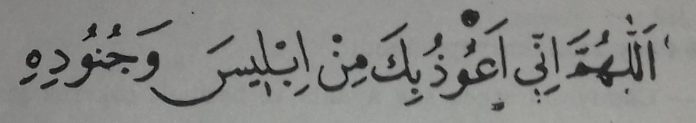 اَللّٰهُمَّ اِنِّي اَعُوْذُ بِكَ مِنْ اِبْلِيسَ وَجُنُوْدِهٖ